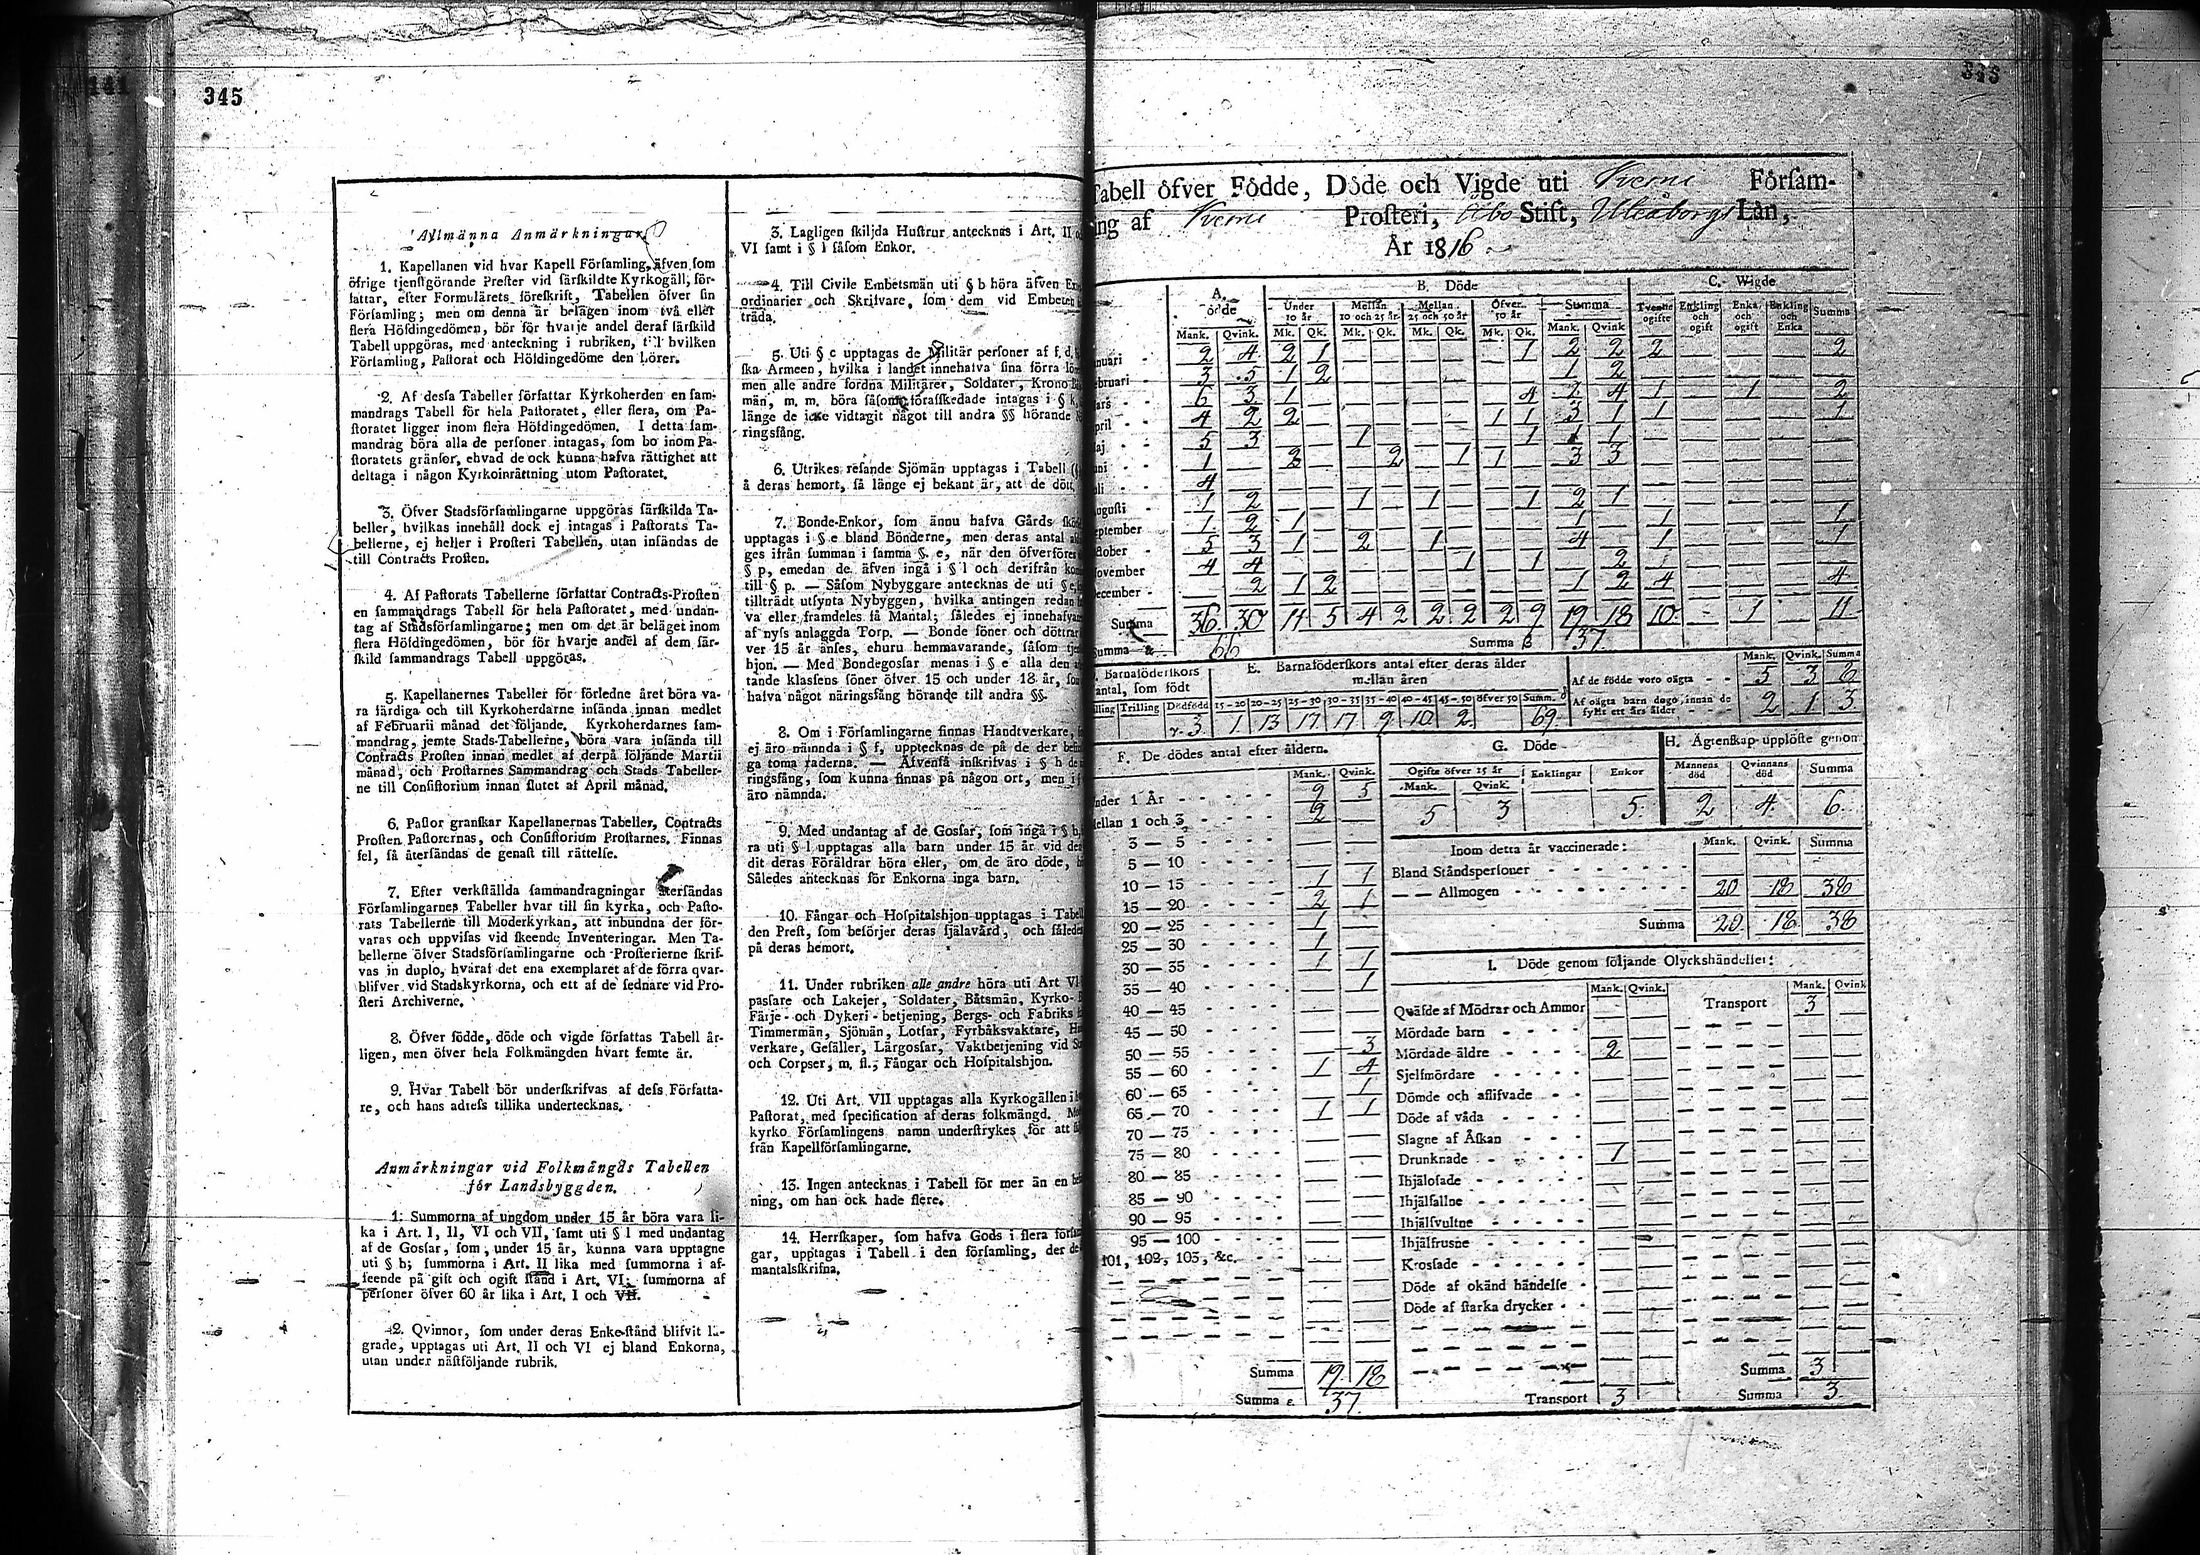 345
Allmänna Anmärkningar.
1. Kapellanen vid hvar Kapell Församling, äfven som
öfrige tjenstgörande Prester vid särskildte Kyrkogäll, för-
fattar, efter Formulärets föreskrift, Tabellen öfver sin
Församling; men om denna är belägen inom två eller
flera Höfdingedömen, bör för hvarje andel deraf särskild
Tabell uppgöras, med anteckning i rubriken, till hvilken
Församling, Pastorat och Höfdingedöme den hörer.
2. Af dessa Tabeller författar Kyrkoherden en sam-
mandrags Tabell för hela Pastoratet, eller flera, om Pa-
storatet ligger inom flera Höfdingedömen. I detta sam-
mandrag böra alla de personer intagas, som bo inom Pa-
storatets gränsor, ehvad de ock kunna hafva rättighet att
deltaga i någon Kyrkoinrättning utom Pastoratet.
3. Öfver Stadsförsamlingarne uppgöras särskilda Ta-
beller, hvilkas innehåll dock ej intagas i Pastorats Ta-
bellerne, ej heller i Prosteri Tabellen, utan insändas de
till Contracts Prosten.
4. Af Pastorats Tabellerne författar Contracts-Prosten
en sammandrags Tabell för hela Pastoratet, med undan-
tag af Stadsförsamlingarne; men om det är beläget inom
flera Höfdingedömen, bör för hvarje andel af dem sär-
skild sammandrags Tabell uppgöras.
5. Kapellanernes Tabeller för förledne året böra va-
ra färdiga och till Kyrkoherdarne insända innan medlet
af Februarii månad det följande. Kyrkoherdarnes sam-
mandrag, jemte Stads-Tabellerne, böra vara insända till
Contracts Prosten innan medlet af derpå följande Martii
månad, och Prostarnes Sammandrag och Stads Tabeller-
ne till Consistorium innan slutet af April månad.
6. Pastor granskar Kapellanernas Tabeller, Contracts
Prosten Pastorernas, och Consistorium Prostarnes. Finnas
fel, så återsändas de genast till rättelse.
7. Efter verkställda sammandragningar återsändas
Församlingarnes Tabeller hvar till sin kyrka, och Pasto-
rats Tabellerne till Moderkyrkan, att inbundna der för-
varas och uppvisas vid skeende Inventeringar. Men Ta-
bellerne öfver Stadsförsamlingarne och Prosterierne skrif-
vas in duplo, hvaraf det ena exemplaret af de förra qvar-
blifver vid Stadskyrkorna, och ett af de sednare vid Pro-
steri Archiverne.
8. Öfver födde, döde och vigde författas Tabell år-
ligen, men öfver hela Folkmängden hvart femte år.
9. Hvar Tabell bör underskrifvas af dess Författa-
re, och hans adress tillika undertecknas.
Anmärkningar vid Folkmängds Tabellen
för Landsbyggden.
1. Summorna af ungdom under 15 år böra vara li-
ka i Art. I, II, VI och VII, samt uti § l med undantag
af de Gossar, som, under 15 år, kunna vara upptagne
uti § b; summorna i Art. II lika med summorna i af-
seende på gift och ogift stånd i Art. VI; summorna af
personer öfver 60 år lika i Art. I och VII.
2. Qvinnor, som under deras Enkestånd blifvit lä-
grade, upptagas uti Art. II och VI ej bland Enkorna,
utan under nästföljande rubrik.
3. Lagligen skiljda Hustrur antecknas i Art. II
VI samt i § l såsom Enkor.
4. Till Civile Embetsmän uti § b höra äfven
ordinarier och Skrifvare, som dem vid Embeten
träda.
5. Uti § c upptagas de Militär personer af f. d.
ska Armeen, hvilka i landet innehafva sina förra
men alle andre fordna Militärer, Soldater, Krono
män, m. m. böra såsom förafskedade intagas i § k,
länge de icke vidtagit något till andra §§ hörande
ringsfång.
6. Utrikes resande Sjömän upptagas i Tabell
å deras hemort, så länge ej bekant är, att de dött.
7. Bonde-Enkor, som ännu hafva Gårds
upptagas i § e bland Bönderne, men deras antal
ges ifrån summan i samma §. e, när den öfverföres
§ p, emedan de äfven ingå i § l och derifrån
till § p. — Såsom Nybyggare antecknas de uti § e,
tillträdt utsynta Nybyggen, hvilka antingen redan
va eller framdeles få Mantal; således ej innehafvare
af nyss anlaggda Torp. — Bonde söner och döttrar
ver 15 år anses, ehuru hemmavarande, såsom
hjon. — Med Bondegossar menas i § e alla den
tande klassens söner öfver 15 och under 18 år,
hafva något näringsfång hörande till andra §§.
8. Om i Församlingarne finnas Handtverkare,
ej äro nämnda i § f, upptecknas de på de der
ga toma raderna. — Äfvenså inskrifvas i § h
ringsfång, som kunna finnas på någon ort, men
äro nämnda.
9. Med undantag af de Gossar, som ingå i § b,
ra uti § l upptagas alla barn under 15 år vid
dit deras Föräldrar höra eller, om de äro döde,
Således antecknas för Enkorna inga barn.
10. Fångar och Hospitalshjon upptagas i
den Prest, som besörjer deras själavård, och således
på deras hemort.
11. Under rubriken alle andre höra uti Art
passare och Lakejer, Soldater, Båtsmän, Kyrko-
Färje- och Dykeri-betjening, Bergs- och Fabriks
Timmermän, Sjömän, Lotsar, Fyrbåksvaktare,
verkare, Gesäller, Lärgossar, Vaktbetjening vid
och Corpser, m. fl.; Fångar och Hospitalshjon.
12. Uti Art. VII upptagas alla Kyrkogällen i
Pastorat, med specification af deras folkmängd.
kyrko Församlingens namn understrykes för att
från Kapellförsamlingarne.
13. Ingen antecknas i Tabell för mer än en
ning, om han ock hade flere.
14. Herrskaper, som hafva Gods i flera
gar, upptagas i Tabell i den församling, der
mantalskrifna.
343
Tabell öfver Födde, Döde och Vigde uti Kverni Försam-
ing af Kverne Prosteri, Åbo Stift, Uleåborgs Län,
År 1816
A. B. Döde C. Wigde
Under 10 år Mellan 10 och 25 år Mellan 25 och 50 år Öfver 50 år Summa Tvenne ogifte Enkling och ogift Enka och ogift Enkling och Enka Summa
Mank. Qvink. Mk. Qk. Mk. Qk. Mk. Qk. Mk. Qk. Mank. Qvink
nuari 2 4 2 1 — — — — — 1 2 2 2 — — — 2
ebruari 3 5 1 2 — — — — — — 1 2 — — — — —
ars 6 3 1 — — — — — — 4 2 4 1 — 1 — 2
pril 4 2 2 — — — — — 1 1 3 1 1 — — — 1
aj 5 3 — — 1 — — — — 1 1 1 — — — — —
uni 1 — 2 — — 2 — 1 1 — 3 3 — — — — —
uli 4 —
ugusti 1 2 — — 1 — 1 — — 1 2 1 — — — — —
eptember 1 2 1 — — — — — — — 1 — 1 — — — 1
ktober 5 3 1 — 2 — 1 — — — 4 — 1 — — — 1
ovember 4 4 — — — — — 1 — 1 — 2
ecember — 2 1 2 — — — — — — 1 2 4 — — — 4
Summa 36 30 11 5 4 2 2 2 2 9 19 18 10 - 1 11
Summa 66 Summa B 37
Barnaföderskors antal, som födt
Trilling Dödfödd
3
E. Barnaföderskors antal efter deras ålder
mellan åren
15-20 20-25 25-30 30-35 35-40 40-45 45-50 öfver 50 Summ.
1 13 17 17 9 10 2 69
Mank. Qvink. Summa
Af de födde voro oägta - - 5 3 8
Af oägta barn dogo, innan de
fyllt ett års ålder 2 1 3
F. De dödes antal efter åldern.
Mank. Qvink.
nder 1 År 9 5
ellan 1 och 3 2 —
3 — 5 — —
5 — 10 — —
10 — 15 1 1
15 — 20 2 1
20 — 25 1 —
25 — 30 1 —
30 — 35 1 1
35 — 40 — 1
40 — 45 — —
45 — 50 — —
50 — 55 — 3
55 — 60 1 4
60 — 65 — 1
65 — 70 1 1
70 — 75 — —
75 — 80 — —
80 — 85 — —
85 — 90 — —
90 — 95 — —
95 — 100 — —
101, 102, 103, &c.
Summa 19 18
Summa 37
G. Döde
Ogifte öfver 15 år Enklingar Enkor
Mank. Qvink.
5 3 5
H. Ägtenskap upplöste genom
Mannens död Qvinnans död Summa
2 4 6
Inom detta år vaccinerade: Mank. Qvink. Summa
Bland Ståndspersoner
— — Allmogen 20 18 38
Summa 20 18 38
I. Döde genom följande Olyckshändelser:
Mank. Qvink. Mank. Qvink
Qväfde af Mödrar och Ammor Transport 3
Mördade barn
Mördade äldre 2
Sjelfmördare
Dömde och aflifvade
Döde af våda
Slagne af Åskan
Drunknade 1
Ihjälosade
Ihjälfallne
Ihjälsvultne
Ihjälfrusne
Krossade
Döde af okänd händelse
Döde af starka drycker
Summa 3
Transport 3 Summa 3